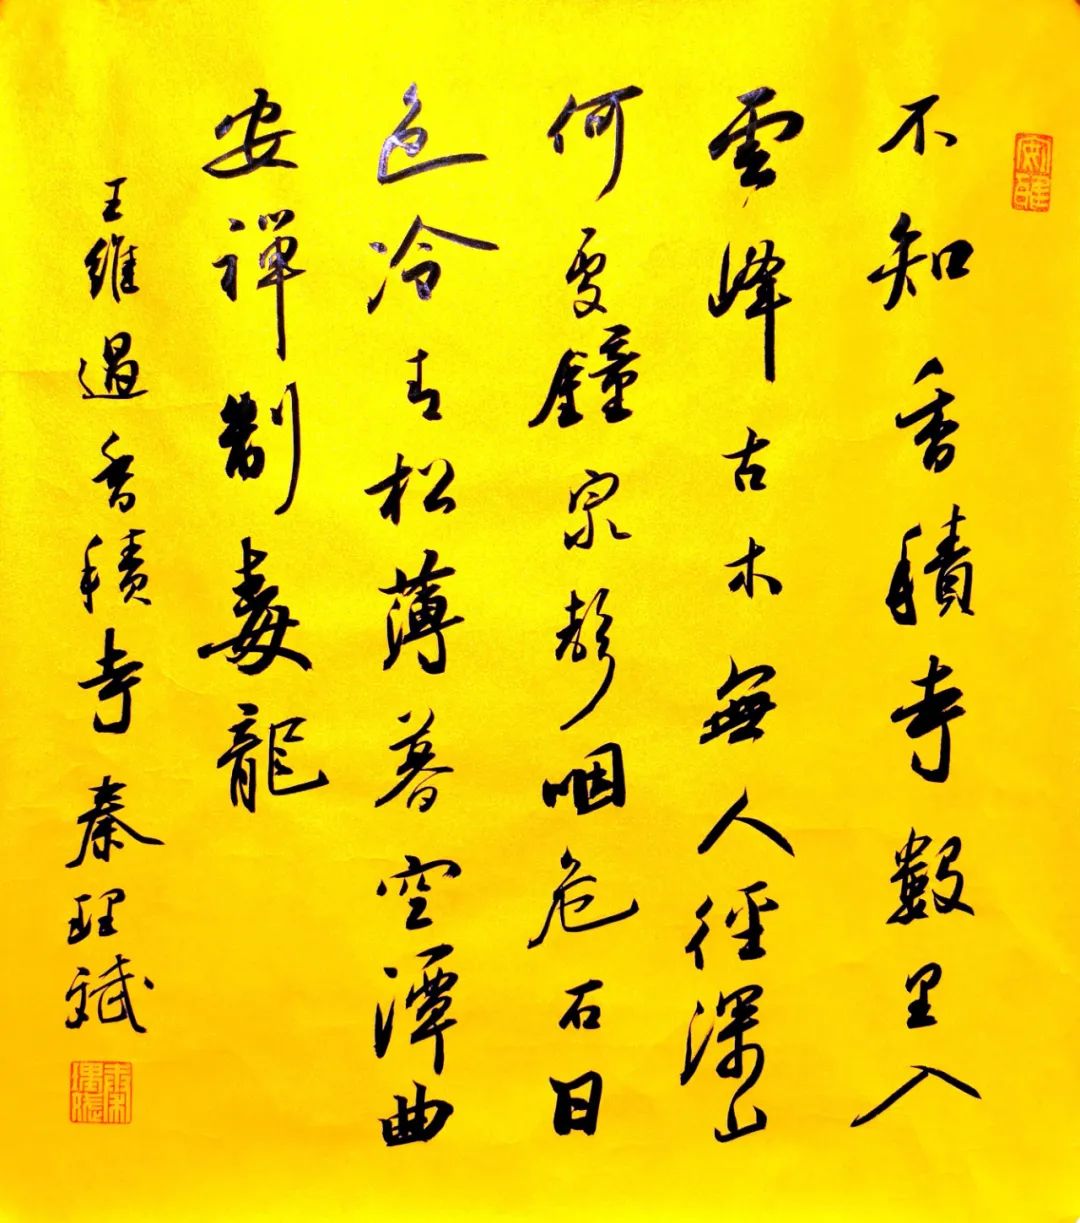 不知香積寺數里入
雲峰古木無人徑深山
何處鐘泉聲咽危石日
色冷青松薄暮空潭曲
安禪制毒龍
王維過香積寺 秦理斌